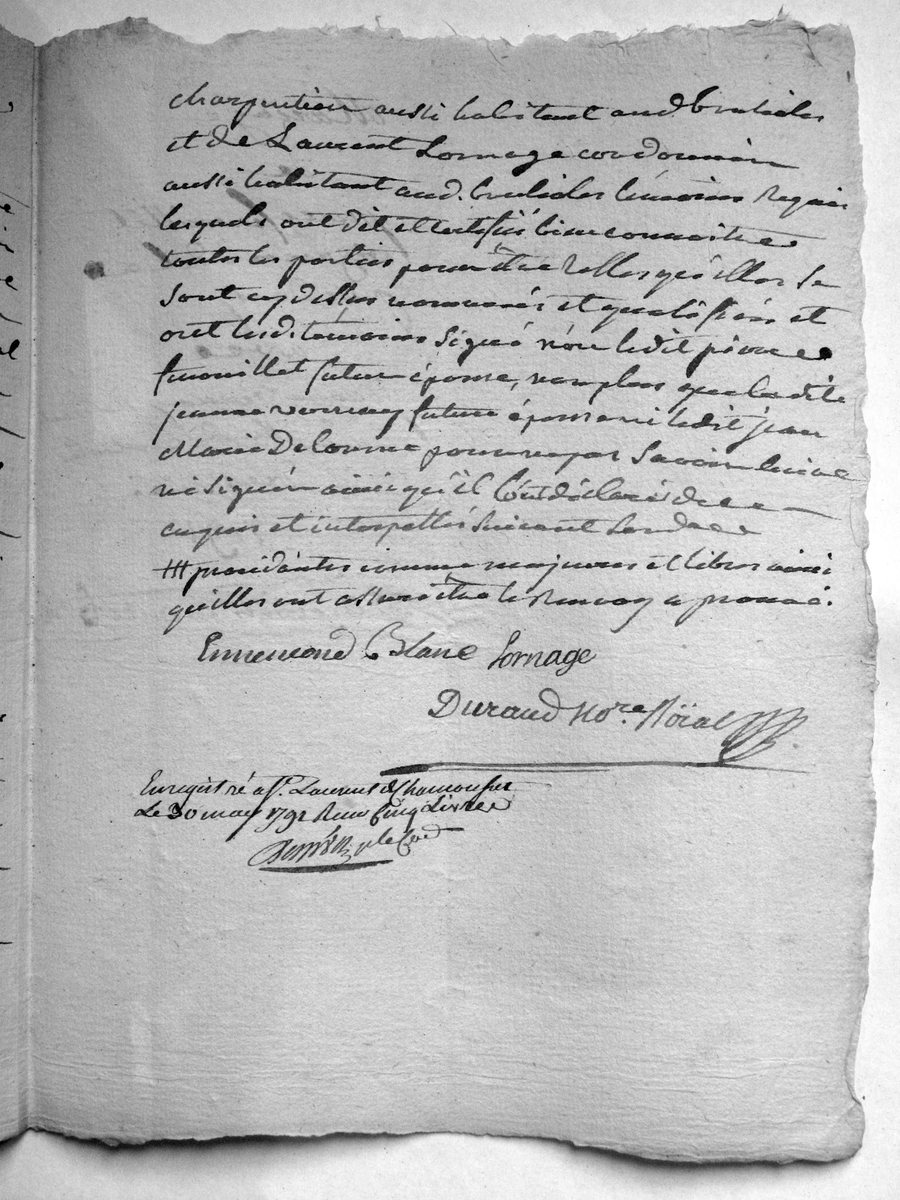 charpentier aussi habitant aud. brulioles
et de Laurent Lornage cordonnier
aussi habitant aud. brulioles témoins Requis
lesquels ont dit et certiffié bien connoitre
toutes les parties pour être telles qu'elles se
sont cy dessus nommées et qualifiées et
ont lesd. témoins signé non ledit pierre
fenouillet futur époux, non plus que ladite
jeanne future épouse ni ledit jean
Marie Delorme pour ne pas savoir lecrire
ni signer ainsi qu'ils l'ont déclaré de ce
enquis et interpellés suivant
procédantes comme majeures et libres ainsi
qu'elles ont assuré être le Renvoy approuvé.
Ennemond Blanc Lornage
Durand No.re Roïal
Enregistré a St. Laurent de Chamousset
Le 30 may 1791 Reçu Cinq Livres